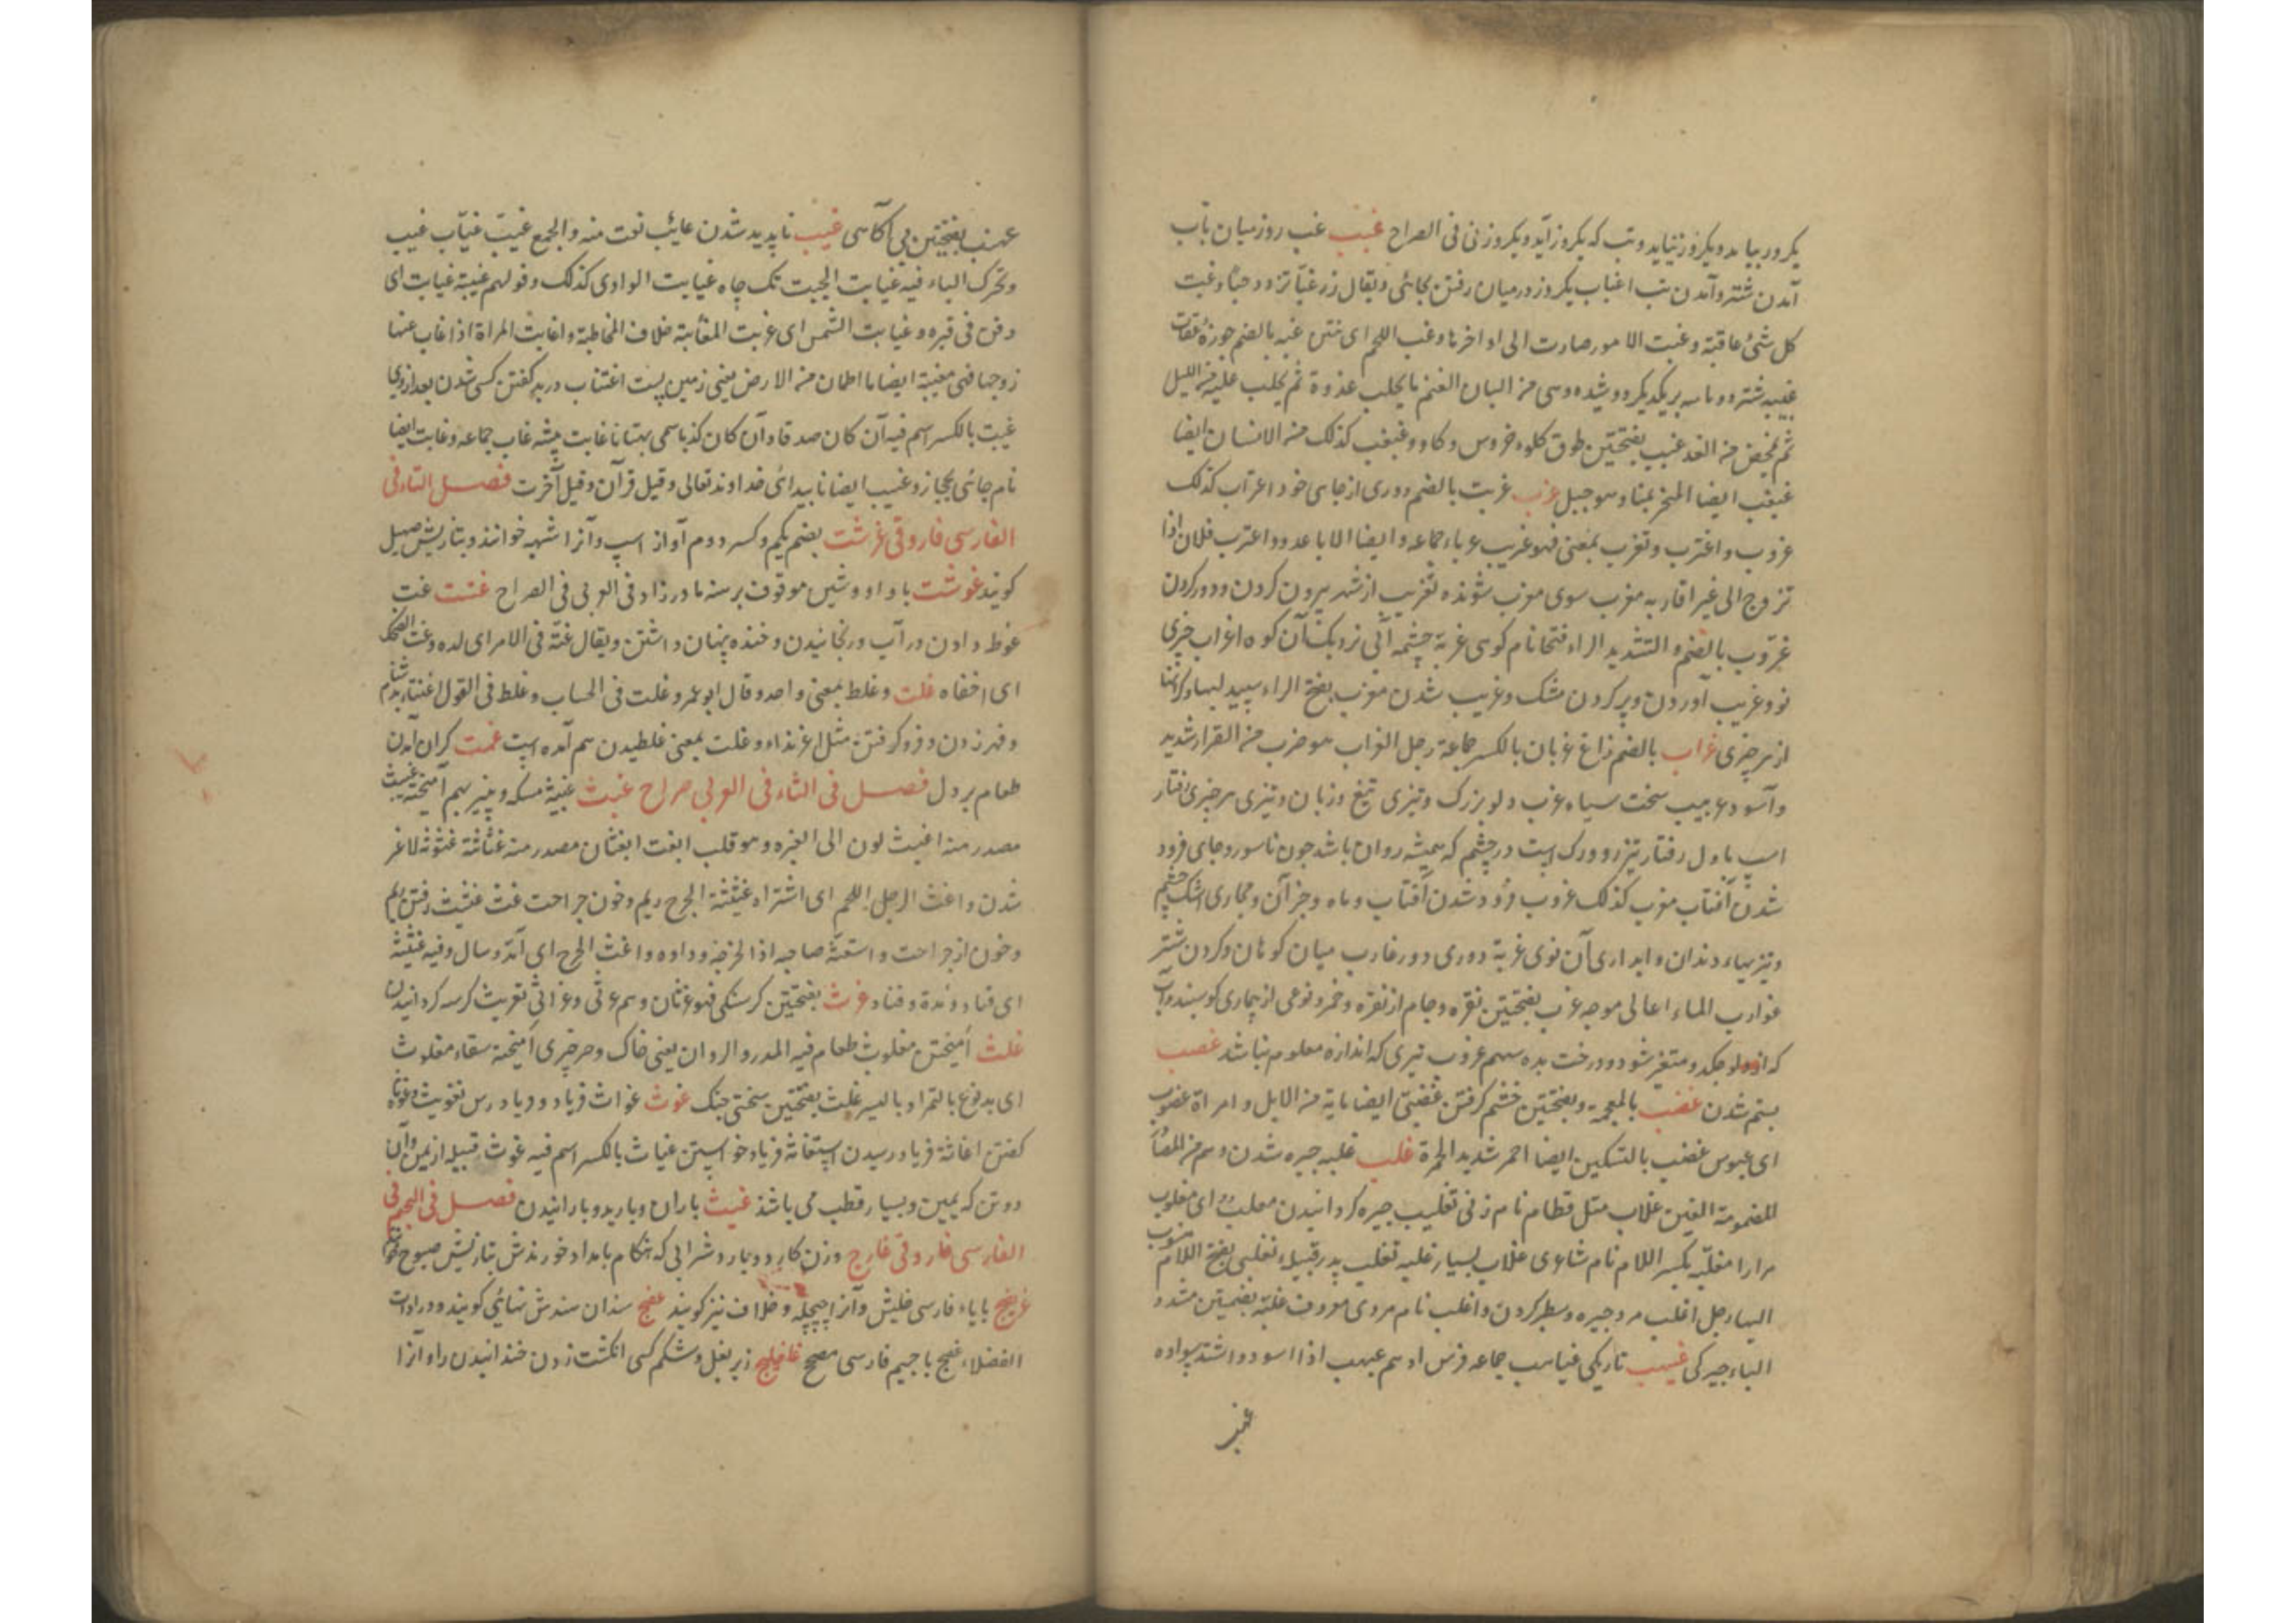 یکروز بیاید و یکروز نیاید و تب که یکروز آید و یکروز نی فی الصراح غبب غب روز میان باب
آمدن شتر و آمدن تب اغباب یکروز درمیان رفتن بجائی و یقال زر غبا تزدد حبا و غبت
کل شئ عاقبته و غبت الامور صارت الی اواخرها و غب اللحم ای نتن غبه بالضم
غبیبه شتر دو ماسه بریکدیکر دوشیده وسی من البان الغنم ما یحلب غدوة ثم یحلب علیه من اللیل
ثم یمخض من الغد غبب بفتحتین طوق کلوه خروس و کاو و غبغب کذلک من الانسان ایضا
غبغب ایضا المنحر بمنا و هو جبیل غرب غربت بالضم دوری از جای خود اغتراب کذلک
غروب و اغترب و تغرب بمعنی فهو غریب غرباء جماعه و ایضا الاباعد و اغترب فلان اذا
تزوج الی غیر اقاربه مغرب سوی مغرب شونده تغریب از شهر بیرون کردن و دور کردن
غرّوب بالضم و التشدید الراء فتحا نام کوهی غربة چشمه آبی نزدیک آن کوه اغراب چیزی
نو و غریب آوردن و پر کردن مشک و غریب شدن مغرب بفتح الراء سپید لبها
از هر چیزی غراب بالضم زاغ غربان بالکسر جماعة رجل الغراب هو ضرب من القرار شدید
و آسود غربیب سخت سیاه غرب دلو بزرک و تیزی تیغ و زبان و تیزی هر چیزی رفتار
اسب باول رفتار تیزرو و رک است در چشم که همیشه روان باشد چون ناسور و جای فرود
شدن آفتاب مغرب کذلک غروب فرود شدن آفتاب و ماه و جز آن و مجاری اشک چشم
و تیزیهاء دندان و ابداری آن نوی غربة دوری دور غارب میان کوهان و کردن شتر
غوارب الماء اعالی موجه غرب بفتحتین نقره و جام از نقره و خمر و نوعی از بیماری کوسپند و آب
که از دلو چکد و متغیر شود و درخت بده سهم غرب تیری که اندازه معلوم نباشد غصب
بستم شدن غضب بالمعجمة و بفتحتین خشم کرفتن غضبی ایضا مایة من الابل و امراة غضوب
ای عبوس غضب بالتسکین ایضا احمر شدید الحمرة غلب غلبه چیره شدن و هم من
المضمومة الغین غلاب مثل قطام نام زنی تغلیب چیره کردانیدن مغلب ای مغلوب
مرارا مغلبه بکسر اللام نام شاعری غلاب بسیار غلبه تغلب پدر قبیله تغلبی بفتح اللام منسوب
الیها رجل اغلب مرد چیره و سطبر کردن و اغلب نام مردی معروف غلبة بضمتین مشدد
الباء چیرکی غیهب تاریکی غیاهب جماعه فرس ادهم غیهب اذا اسود و اشتد سواده
غهب
غهب بفتحتین بی آکاهی غیب ناپدید شدن غایب نعت منه و الجمع غیب غیاب غیب
و تحرک الباء فیه غیابت الجبت تک چاه غیابت الوادی کذلک و قولهم غیبة غیابت ای
دفن فی قبره و غیابت الشمس ای غربت المغائبة خلاف المخاطبة و اغابت المراة اذا غاب عنها
زوجها فهی مغیبة ایضا ما اطمان من الارض یعنی زمین پست اغتیاب در بد کفتن کسی شدن بعد از وی
غیبت بالکسر اسم فیه ان کان صدقا و ان کان کذبا سمی بهتانا غابت بیشه غاب جماعه و غابت ایضا
نام جائی بحجاز و غیب ایضا ناپیدائی خداوند تعالی و قیل قرآن و قیل آخرت فصل التاء فی
الفارسی فاروقی غرشت بضم یکم و کسر دوم آواز اسپ و آنرا شهه خوانند و بتازیش صهیل
کویند غوشت با واو و شین موقوف برهنه مادرزاد فی العربی فی الصراح غتت غت
غوط دادن در آب و رنجانیدن و خنده پنهان داشتن و یقال غته فی الامر ای لده و غت الضحک
ای اخفاه غلت و غلط بمعنی واحد و قال ابو عمرو غلت فی الحساب و غلط فی القول
و قهر زدن و فرو کرفتن مثل اغرنداء و غلت بمعنی غلطیدن هم آمده است غمت کران آمدن
طعام بر دل فصل فی الثاء فی العربی صراح غبث غبیثه مسکه و پنیر بهم آمیخته غبث
مصدر منه اغبث لون الی الغبره و هو قلب ابغث ابغثان مصدر منه غثاثة غثوثه لاغر
شدن و اغث الرجل اللحم ای اشتراه غثیثة الجرح ریم و خون جراحت غث غثیث رفتن ریم
و خون از جراحت و استغثه صاحبه اذا اخرجه و داوه و اغث الجرح ای آمد و سال و فیه غثیثه
ای فساد غرث بفتحتین کرسنکی فهو غرثان و هم غرثی و غراثی تغریث کرسنه کردانیدن
غلث آمیختن مغلوث طعام فیه المدر و الزوان یعنی خاک و هر چیزی آمیخته سقاء مغلوث
ای مدبوغ بالتمر او بالبسر غلث بفتحتین سختی جنک غوث غواث فریاد و فریادرس تغویث
کفتن اغاثه فریاد رسیدن استغاثه فریاد خواستن غیاث بالکسر اسم فیه غوث قبیله از یمن و آن
دو تن که یمین و یسار قطب می باشند غیث باران و بارید و بارانیدن فصل فی الجیم فی
الفارسی فاروقی غارج وزن کارد و دیار و شرابی که هنکام بامداد خورندش بتازیش صبوح
غریج بایاء فارسی خلیش و آنرا چیچله و خلاف نیز کویند غفج سندان سندش نهائی کویند و در ادات
الفضلاء غفج باجیم فارسی مصحح غلغلیج زیر بغل و شکم کسی انکشت زدن خندانیدن را و آنرا